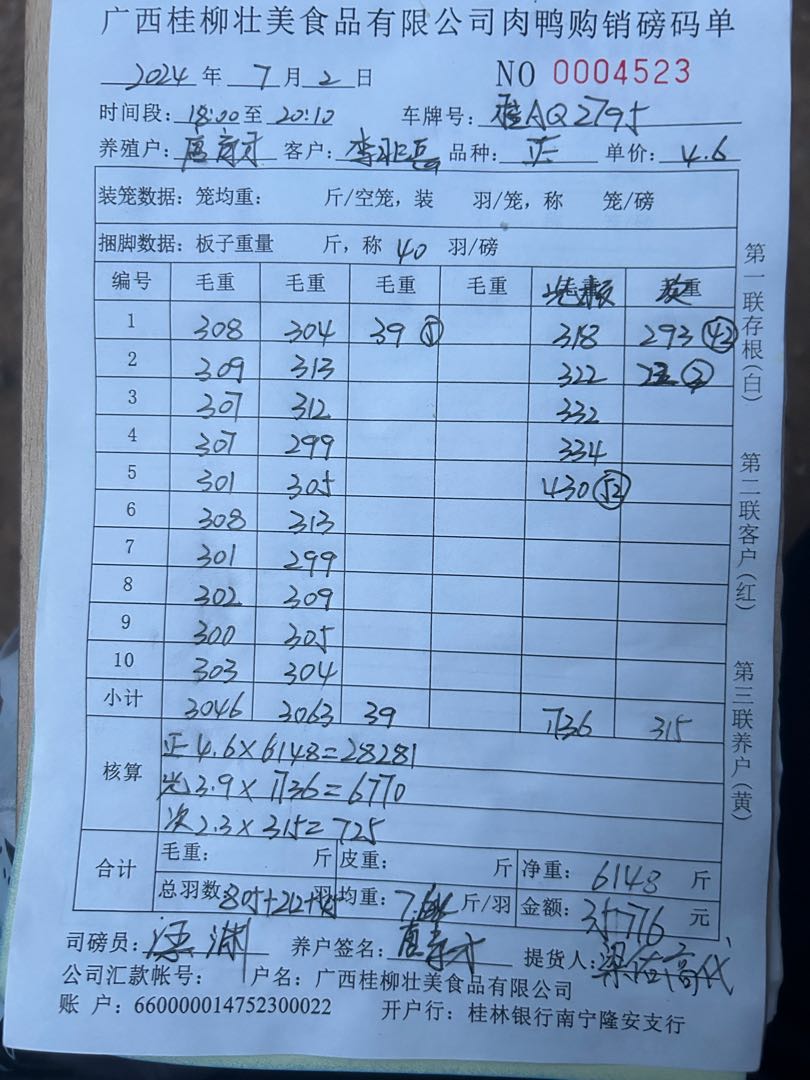 广西桂柳壮美食品有限公司肉鸭购销磅码单
2024 年 7 月 2 日 NO 0004523
时间段: 18:00 至 20:10 车牌号: 桂AQ2795
养殖户: 客户: 品种: 正 单价: 4.6
装笼数据: 笼均重: 斤/空笼, 装 羽/笼, 称 笼/磅
捆脚数据: 板子重量 斤, 称 40 羽/磅
编号 毛重 毛重 毛重 毛重 次
1 308 304 39 ⑤ 318 293 ㊷
2 309 313 322
3 307 312 332
4 307 299 334
5 301 305 430 (52)
6 308 313
7 301 299
8 302 309
9 300 305
10 303 304
小计 3046 3063 39 1736 315
核算 正 4.6×6148=28281
光 3.9×1736=6770
次 2.3×315=725
合计 毛重: 斤 皮重: 斤 净重: 6148 斤
总羽数 805+212+45 羽 均重: 斤/羽 金额: 35776 元
司磅员: 养户签名: 提货人:
公司汇款帐号: 户名: 广西桂柳壮美食品有限公司
账 户: 660000014752300022 开户行: 桂林银行南宁隆安支行
第一联存根(白)
第二联客户(红)
第三联养户(黄)